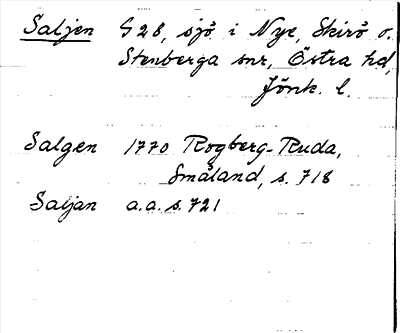 Saljen G28, sjö i Nye, Skirö o.
Stenberga snr, Östra hd,
Jönk. l.
Salgen 1770 Rogberg-Ruda,
Småland, s. 718
Saljan a.a.s. 721